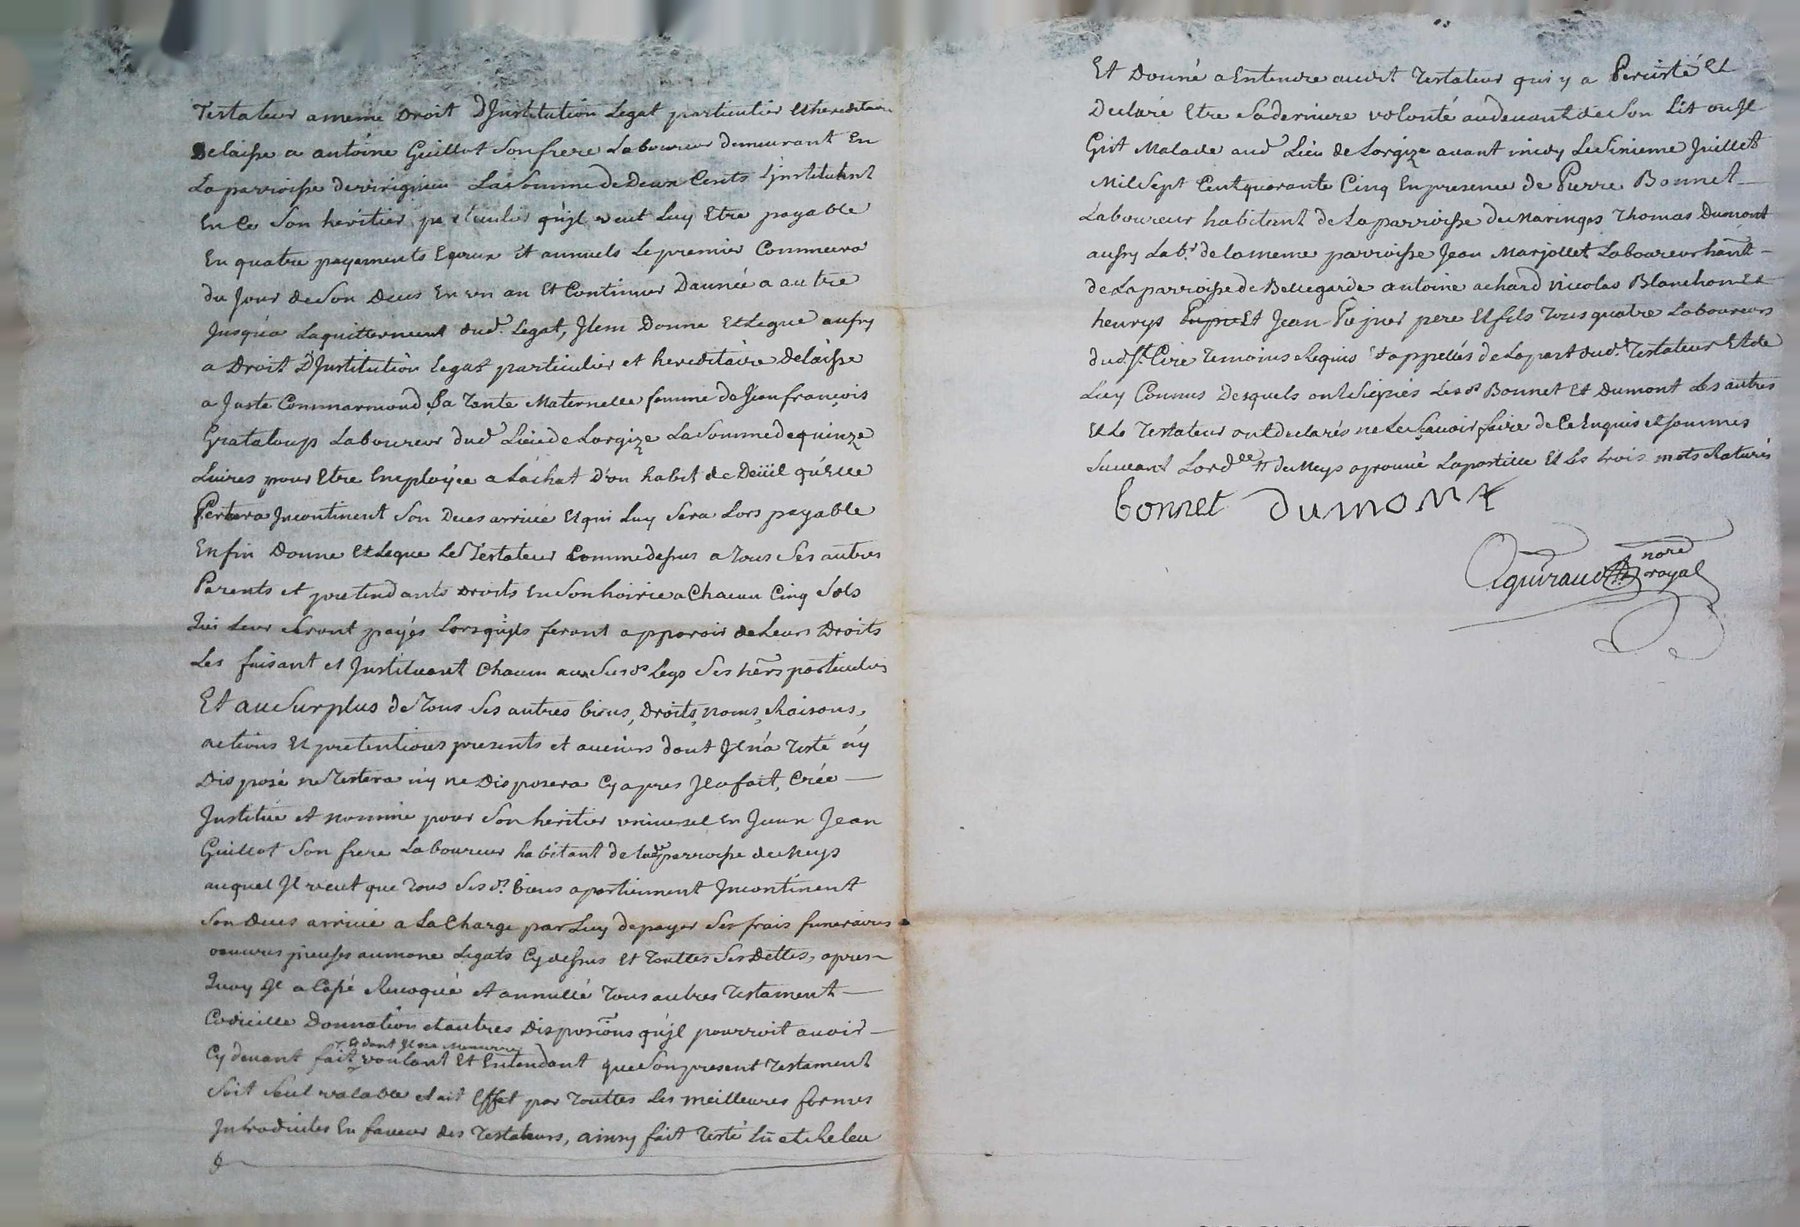 Testateur a meme Droit D'Institution Legat particulier et hereditaire
Delaisse a antoine Guillot Son frere Laboureur demeurant En
La parroisse de virigneu La Somme de Deux Cents l'jnstituant
En Ce Son heritier particulier qu'jl veut Luy Etre payable
En quatre payements Egeaux et annuels Le premier Commencera
du Jour de Son Deces En un an Et Continuer D'année a autre
Jusqu'a Laquittement dud. Legat, Jtem Donne Et Legue aussy
a Droit D'Jnstitution legat particulier et hereditaire delaisse
a Juste Commarmond Sa Tente Maternelle femme de Jean françois
Grataloup Laboureur dud. Lieu de Lorgize La Somme de quinze
Livres pour Etre Employée a L'achat D'un habit de Deüil qu'Elle
Portera Jncontinent Son Deces arrivé Et qui Luy Sera Lors payable
Enfin Donne Et Legue Le Testateur Comme dessus a Tous Ses autres
Parents et pretendants Droits En Son hoirie a Chacun Cinq Sols
Qui Leur Seront payés Lorsqu'jls feront apparoir de Leurs Droits
Les faisant et Jnstituant Chacun aux Susd. Legs Ses hers particuliers
Et au Surplus de Tous Ses autres biens, Droits, noms, Raisons,
actions Et pretentions presents et avenirs dont Jl n'a Testé n'y
Disposé ne Testera n'y ne Disposera Cy apres Jl a fait, Crée
Jnstitué et nommé pour Son heritier universel En Jceux Jean
Guillot Son frere Laboureur habitant de lad. parroisse de Meys
auquel Jl veut que Tous Sesd. biens apartiennent Jncontinent
Son Deces arrivé a La Charge par Luy de payer Ses frais funeraires
oeuvres pieuses aumone Legats Cy dessus Et Touttes Ses Dettes, apres
Quoy Jl a Cassé Revoqué et annullé Tous autres Testament
Codicille Donnation et autres Disposions qu'jl pourroit avoir
Et dont Jl
Cy devant fait voulant Et Entendant que Son present Testament
Soit Seul valable et ait Effet par Touttes Les meilleures formes
Jntroduites En faveur des Testateurs, ainsy fait Testé Lu et Releu
Et Donné a Entendre audit Testateur qui y a Percisté Et
Declaré Etre Sa derniere volonté au devant de Son Lit ou Jl
Git Malade aud. Lieu de Lorgize avant midy Le Sixieme Juillet
Mil Sept Cent quarante Cinq En presence de Pierre Bonnet
Laboureur habitant de La parroisse de Maringes Thomas Dumont
aussy Lab.r de la meme parroisse Jean Marjollet Laboureur hant
de La parroisse de Bellegarde antoine achard Nicolas Blanchon Et
henrys Et Jean pere Et fils Tous quatre Laboureurs
dud. St. Cire Temoins Requis Et appellés de La part dud. Testateur Et de
Luy Connus Desquels ont Signés Lesd. Bonnet Et Dumont Les autres
Et Le Testateur ont declarés ne Le Sçavoir faire de Ce Enquis et Sommés
Suivant Lord.ce de Meys aprouvé Lapostille Et Les trois mots Raturés
bonnet dumont
nore
Aguiraud royal